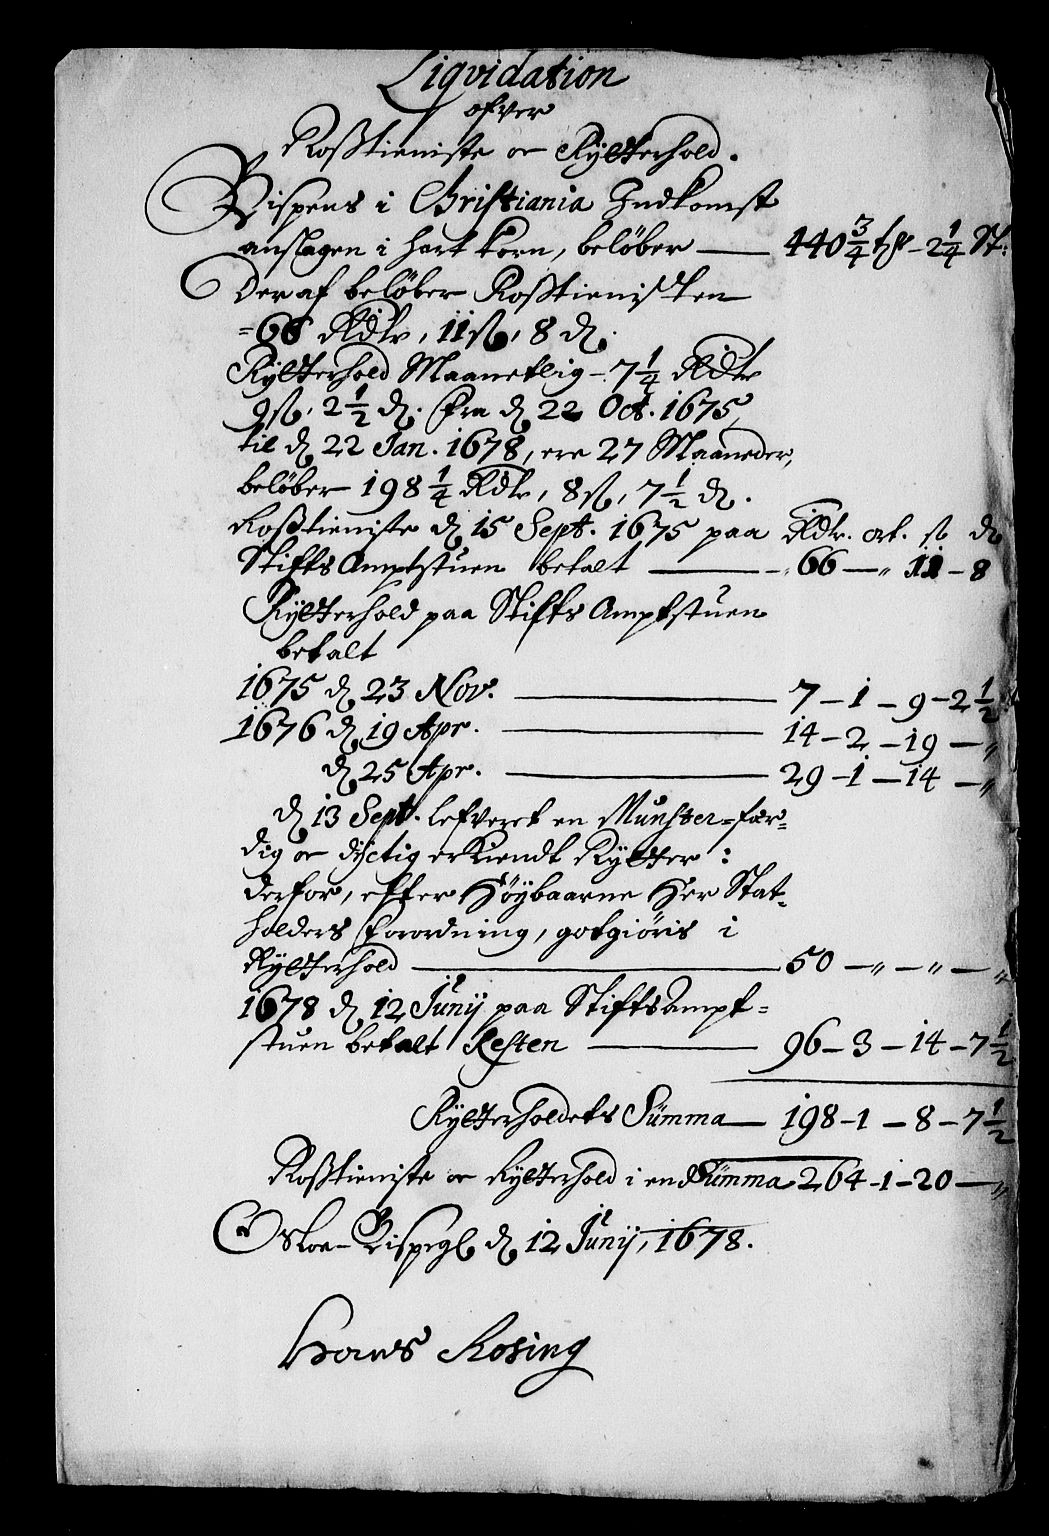 Liqvidation
ofver
Roßtieniste oc Rytterhold.
Bispens i Christiania Indkomst
anslagen i hart korn, beløber — 440 3/4 tr - 2 1/4 St:
Der af beløber Roßtienisten
=66 Rdlr, 11 ß, 8 d.
Rytterhold Maanetlig - 7 1/4 Rdlr
9 ß, 2 1/2 d. fra d. 22 Oct. 1675,
til d. 22 Jan. 1678, ere 27 Maaneder,
beløber 198 1/4 Rdlr, 8 ß, 7 1/2 d.
Roßtieniste d. 15 Sept. 1675 paa Rdlr. ort. ß d
Stifts Amptstuen betalt — 66 — " 11 - 8
Rytterhold paa Stifts Amptstuen
betalt
1675 d. 23 Nov. — 7 - 1 - 9 - 2 1/2
1676 d. 19 Apr. — 14 - 2 - 19 - "
d. 25 Apr. — 29 - 1 - 14 - "
d. 13 Sept. lefveret en Munster=fær=
dig oc dyctig erkiendt Rytter:
derfor, efter Høybaarne Her Stat=
holders forordning, gotgiøris i
Rytterhold — 50 - " - " - "
1678 d. 12 Junij paa Stiftsampt=
stuen betalt Resten — 96 - 3 - 14 - 7 1/2
Rytterholdets Summa — 198 - 1 - 8 - 7 1/2
Roßtieniste oc Rytterhold i en Summa 264 - 1 - 20 - "
Osloe-Bispegl d. 12 Junij, 1678.
Hans Rosing